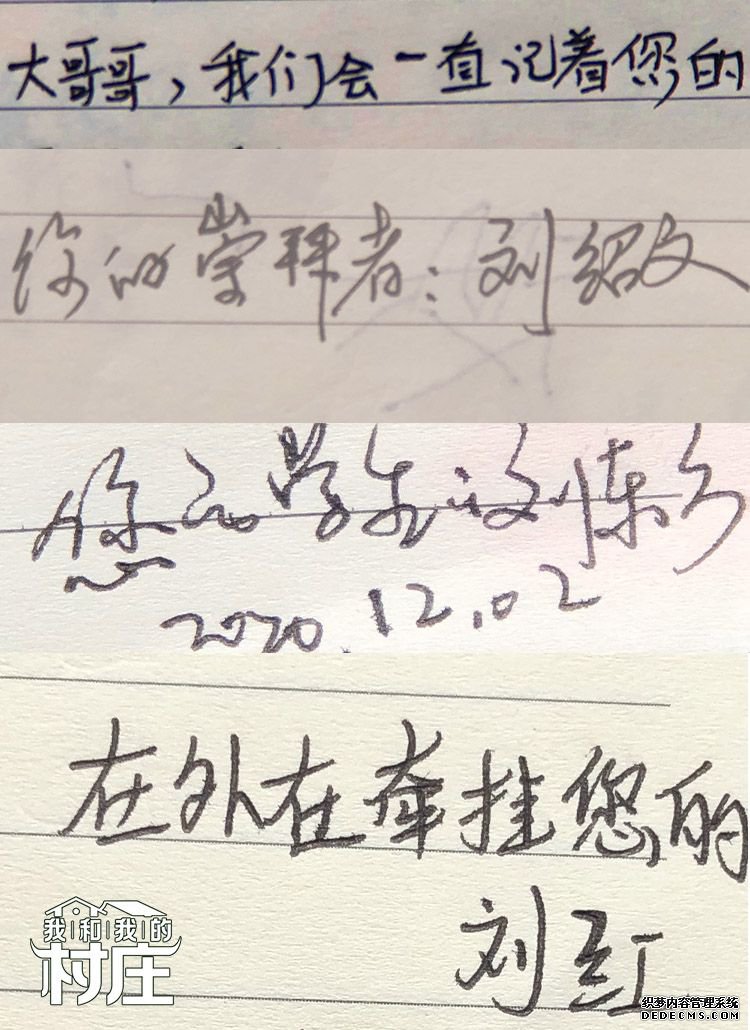 大哥哥，我们会一直记着您的
你的崇拜者：刘绍文
您的学生：刘
2020.12.02
在外在牵挂您的
刘红
我和我的
村庄
织梦内容管理系统
DEDECMS.COM